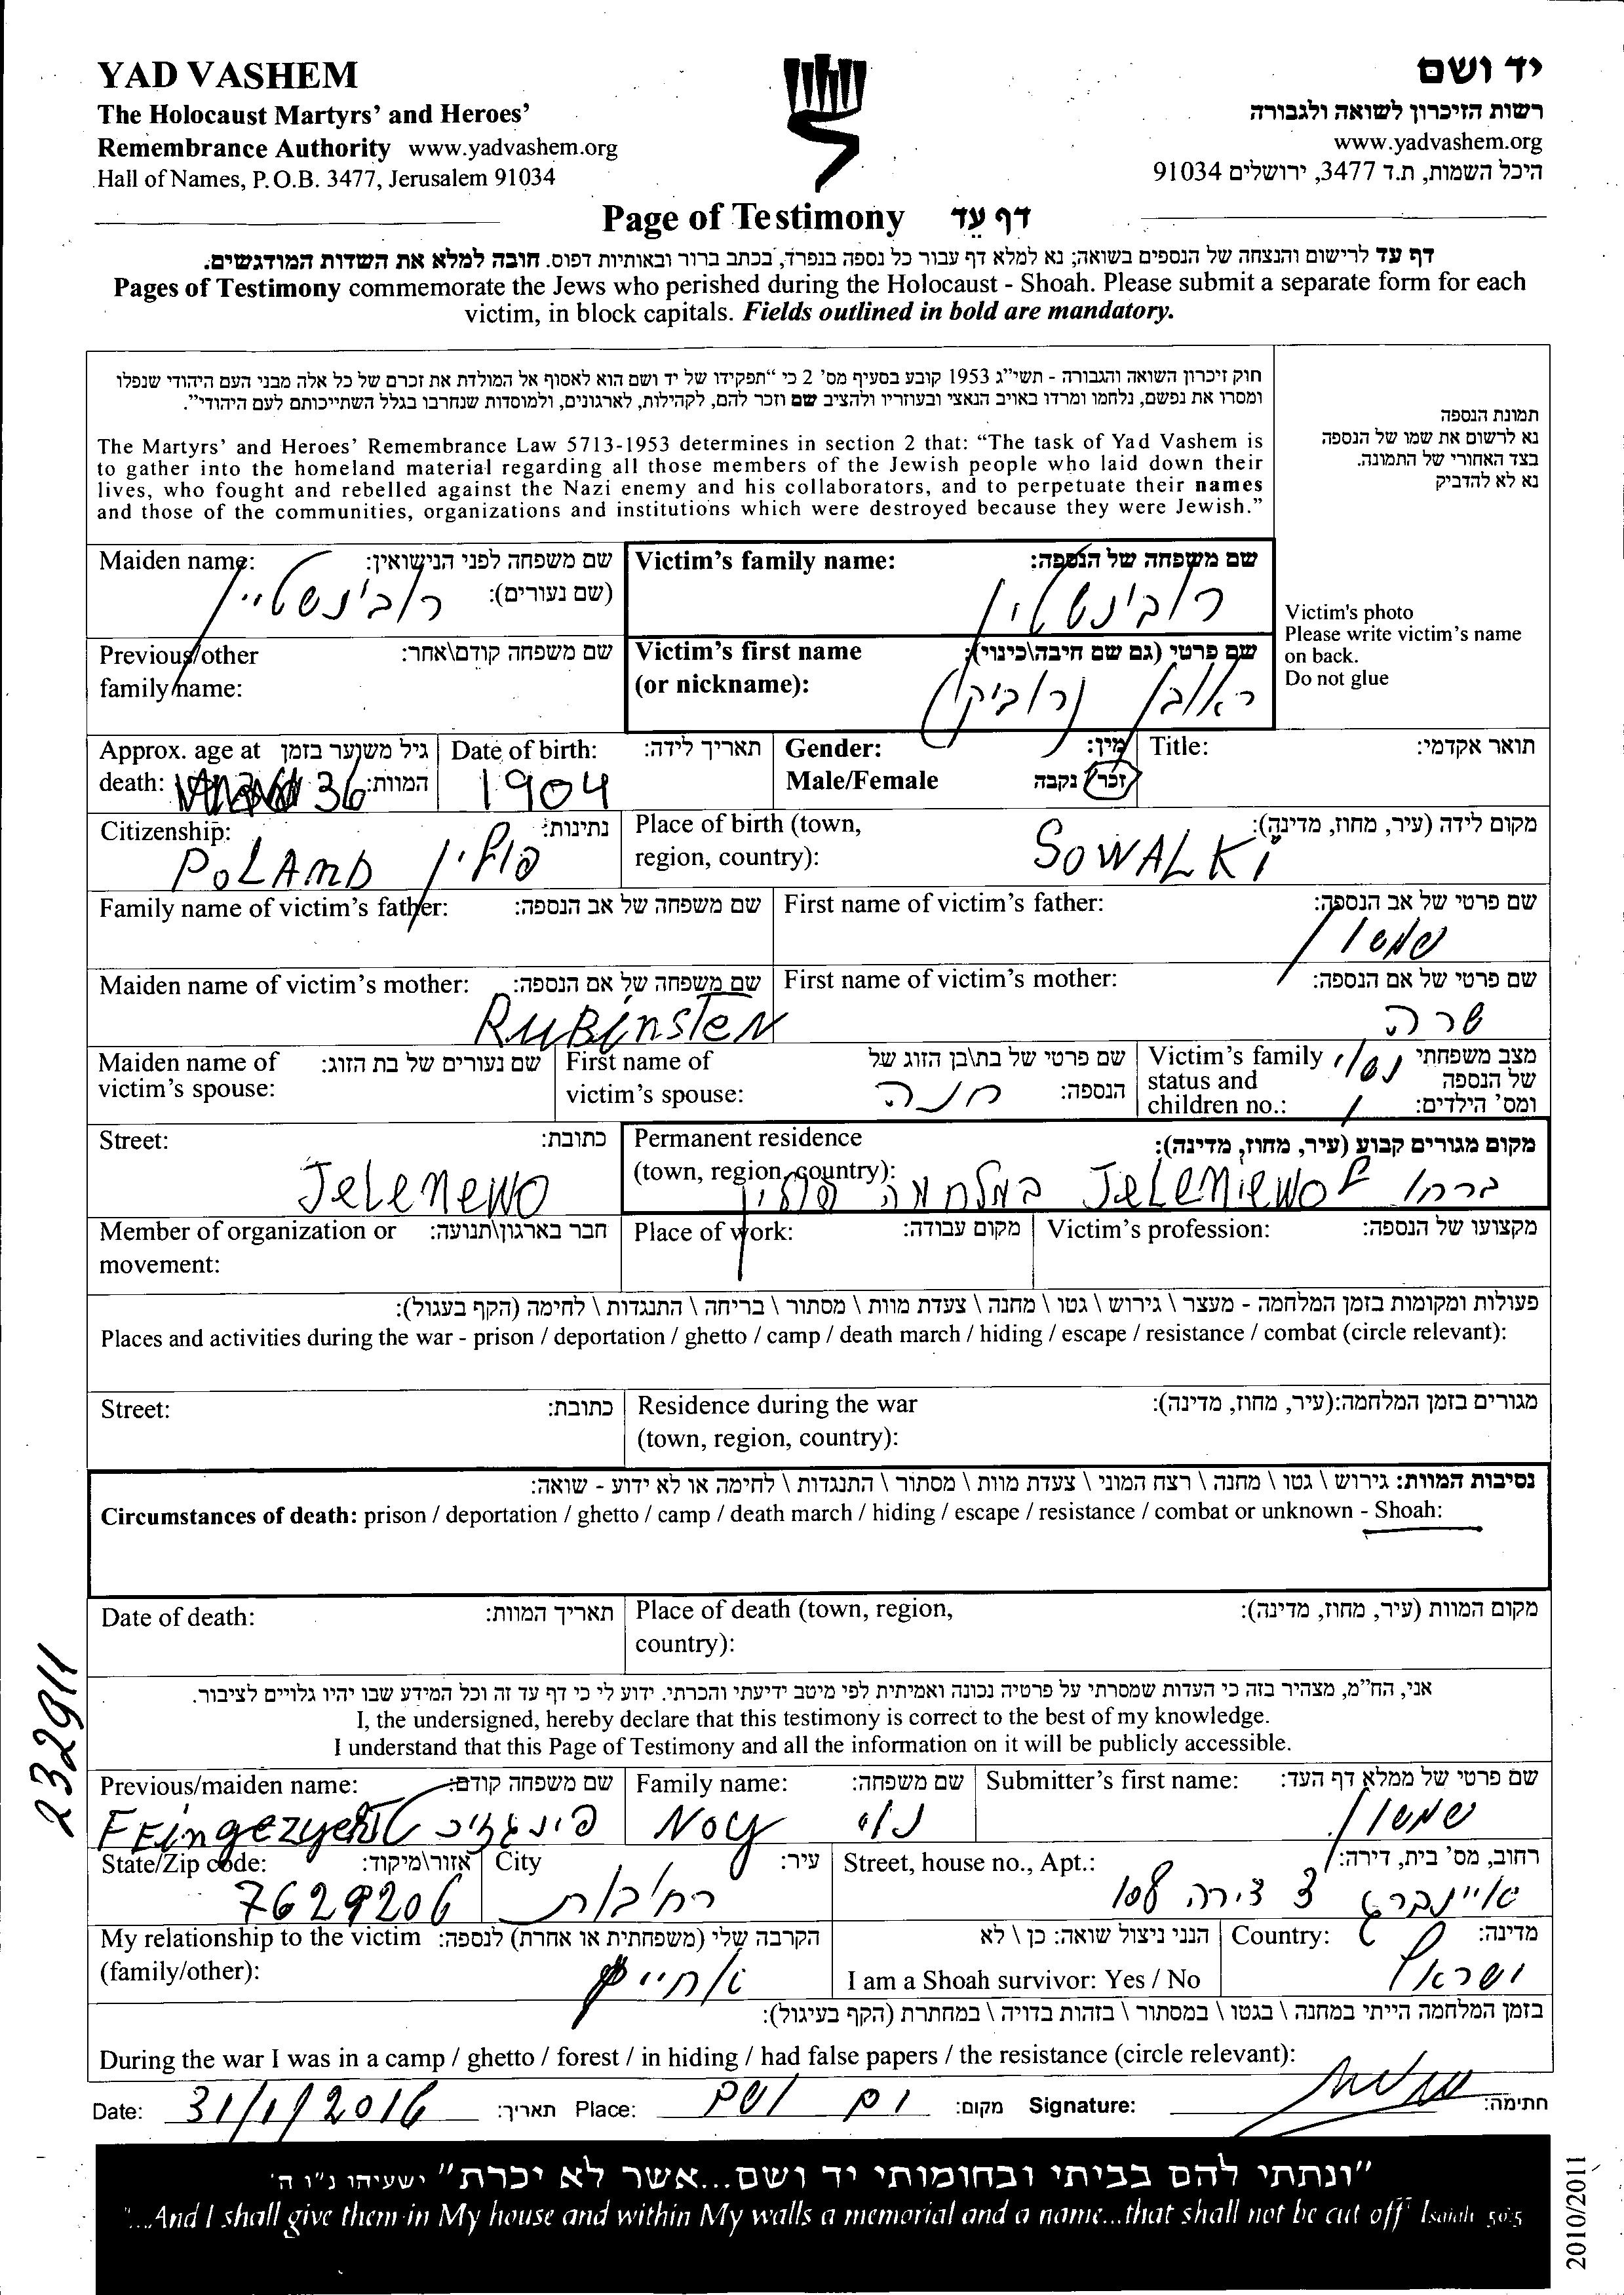 YAD VASHEM
יד ושם
The Holocaust Martyrs' and Heroes'
רשות הזיכרון לשואה ולגבורה
Remembrance Authority www.yadvashem.org
www.yadvashem.org
Hall of Names, P.O.B. 3477, Jerusalem 91034
היכל השמות, ת.ד 3477, ירושלים 91034
Page of Testimony דף עֵד
דף עד לרישום והנצחה של הנספים בשואה; נא למלא דף עבור כל נספה בנפרד, בכתב ברור ובאותיות דפוס. חובה למלא את השדות המודגשים.
Pages of Testimony commemorate the Jews who perished during the Holocaust - Shoah. Please submit a separate form for each
victim, in block capitals. Fields outlined in bold are mandatory.
חוק זיכרון השואה והגבורה - תשי"ג 1953 קובע בסעיף מס' 2 כי "תפקידו של יד ושם הוא לאסוף אל המולדת את זכרם של כל אלה מבני העם היהודי שנפלו
ומסרו את נפשם, נלחמו ומרדו באויב הנאצי ובעוזריו ולהציב שם וזכר להם, לקהילות, לארגונים, ולמוסדות שנחרבו בגלל השתייכותם לעם היהודי".
The Martyrs' and Heroes' Remembrance Law 5713-1953 determines in section 2 that: "The task of Yad Vashem is
to gather into the homeland material regarding all those members of the Jewish people who laid down their
lives, who fought and rebelled against the Nazi enemy and his collaborators, and to perpetuate their names
and those of the communities, organizations and institutions which were destroyed because they were Jewish."
תמונת הנספה
נא לרשום את שמו של הנספה
בצד האחורי של התמונה.
נא לא להדביק
Victim's photo
Please write victim's name
on back.
Do not glue
Maiden name: שם משפחה לפני הנישואין:
(שם נעורים):
רובינשטיין
Victim's family name: שם משפחה של הנספה:
רובינשטיין
Previous/other שם משפחה קודם\אחר:
family name:
Victim's first name שם פרטי (גם שם חיבה\כינוי):
(or nickname):
ראובן (רוביק)
Approx. age at גיל משוער בזמן
death: 36 המוות:
Date of birth: תאריך לידה:
1904
Gender: מין:
Male/Female זכר נקבה
Title: תואר אקדמי:
Citizenship: נתינות:
POLAND פולין
Place of birth (town, מקום לידה (עיר, מחוז, מדינה):
region, country):
SOWALKI
Family name of victim's father: שם משפחה של אב הנספה:
First name of victim's father: שם פרטי של אב הנספה:
שמשון
Maiden name of victim's mother: שם משפחה של אם הנספה:
RUBINSTEN
First name of victim's mother: שם פרטי של אם הנספה:
שרה
Maiden name of שם נעורים של בת הזוג:
victim's spouse:
First name of שם פרטי של בת\בן הזוג של
victim's spouse: הנספה:
חנה
Victim's family מצב משפחתי
status and של הנספה
children no.: ומס' הילדים:
נשוי
1
Street: כתובת:
JELENEWO
Permanent residence מקום מגורים קבוע (עיר, מחוז, מדינה):
(town, region, country):
ברחו ל JELENIEWO במלחמה פולין
Member of organization or חבר בארגון\תנועה:
movement:
Place of work: מקום עבודה:
Victim's profession: מקצועו של הנספה:
פעולות ומקומות בזמן המלחמה - מעצר \ גירוש \ גטו \ מחנה \ צעדת מוות \ מסתור \ בריחה \ התנגדות \ לחימה (הקף בעגול):
Places and activities during the war - prison / deportation / ghetto / camp / death march / hiding / escape / resistance / combat (circle relevant):
Street: כתובת:
Residence during the war מגורים בזמן המלחמה:(עיר, מחוז, מדינה):
(town, region, country):
נסיבות המוות: גירוש \ גטו \ מחנה \ רצח המוני \ צעדת מוות \ מסתור \ התנגדות \ לחימה או לא ידוע - שואה:
Circumstances of death: prison / deportation / ghetto / camp / death march / hiding / escape / resistance / combat or unknown - Shoah:
Date of death: תאריך המוות:
Place of death (town, region, מקום המוות (עיר, מחוז, מדינה):
country):
232911
אני, הח"מ, מצהיר בזה כי העדות שמסרתי על פרטיה נכונה ואמיתית לפי מיטב ידיעתי והכרתי. ידוע לי כי דף עד זה וכל המידע שבו יהיו גלויים לציבור.
I, the undersigned, hereby declare that this testimony is correct to the best of my knowledge.
I understand that this Page of Testimony and all the information on it will be publicly accessible.
Previous/maiden name: שם משפחה קודם:
Family name: שם משפחה:
NOY נוי
Submitter's first name: שם פרטי של ממלא דף העד:
שמשון
State/Zip code: אזור\מיקוד:
7629206
City עיר:
רחובות
Street, house no., Apt.: רחוב, מס' בית, דירה:
איינברג 3 דירה 108
My relationship to the victim הקרבה שלי (משפחתית או אחרת) לנספה:
(family/other):
אחיין
הנני ניצול שואה: כן \ לא
I am a Shoah survivor: Yes / No
Country: מדינה:
ישראל
בזמן המלחמה הייתי במחנה \ בגטו \ במסתור \ בזהות בדויה \ במחתרת (הקף בעיגול):
During the war I was in a camp / ghetto / forest / in hiding / had false papers / the resistance (circle relevant):
Date: 31/1/2016 תאריך: Place: מקום: Signature: חתימה:
"ונתתי להם בביתי ובחומותי יד ושם...אשר לא יכרת" ישעיהו נ"ו ה'
"...And I shall give them in My house and within My walls a memorial and a name...that shall not be cut off" Isaiah 56:5
2010/2011